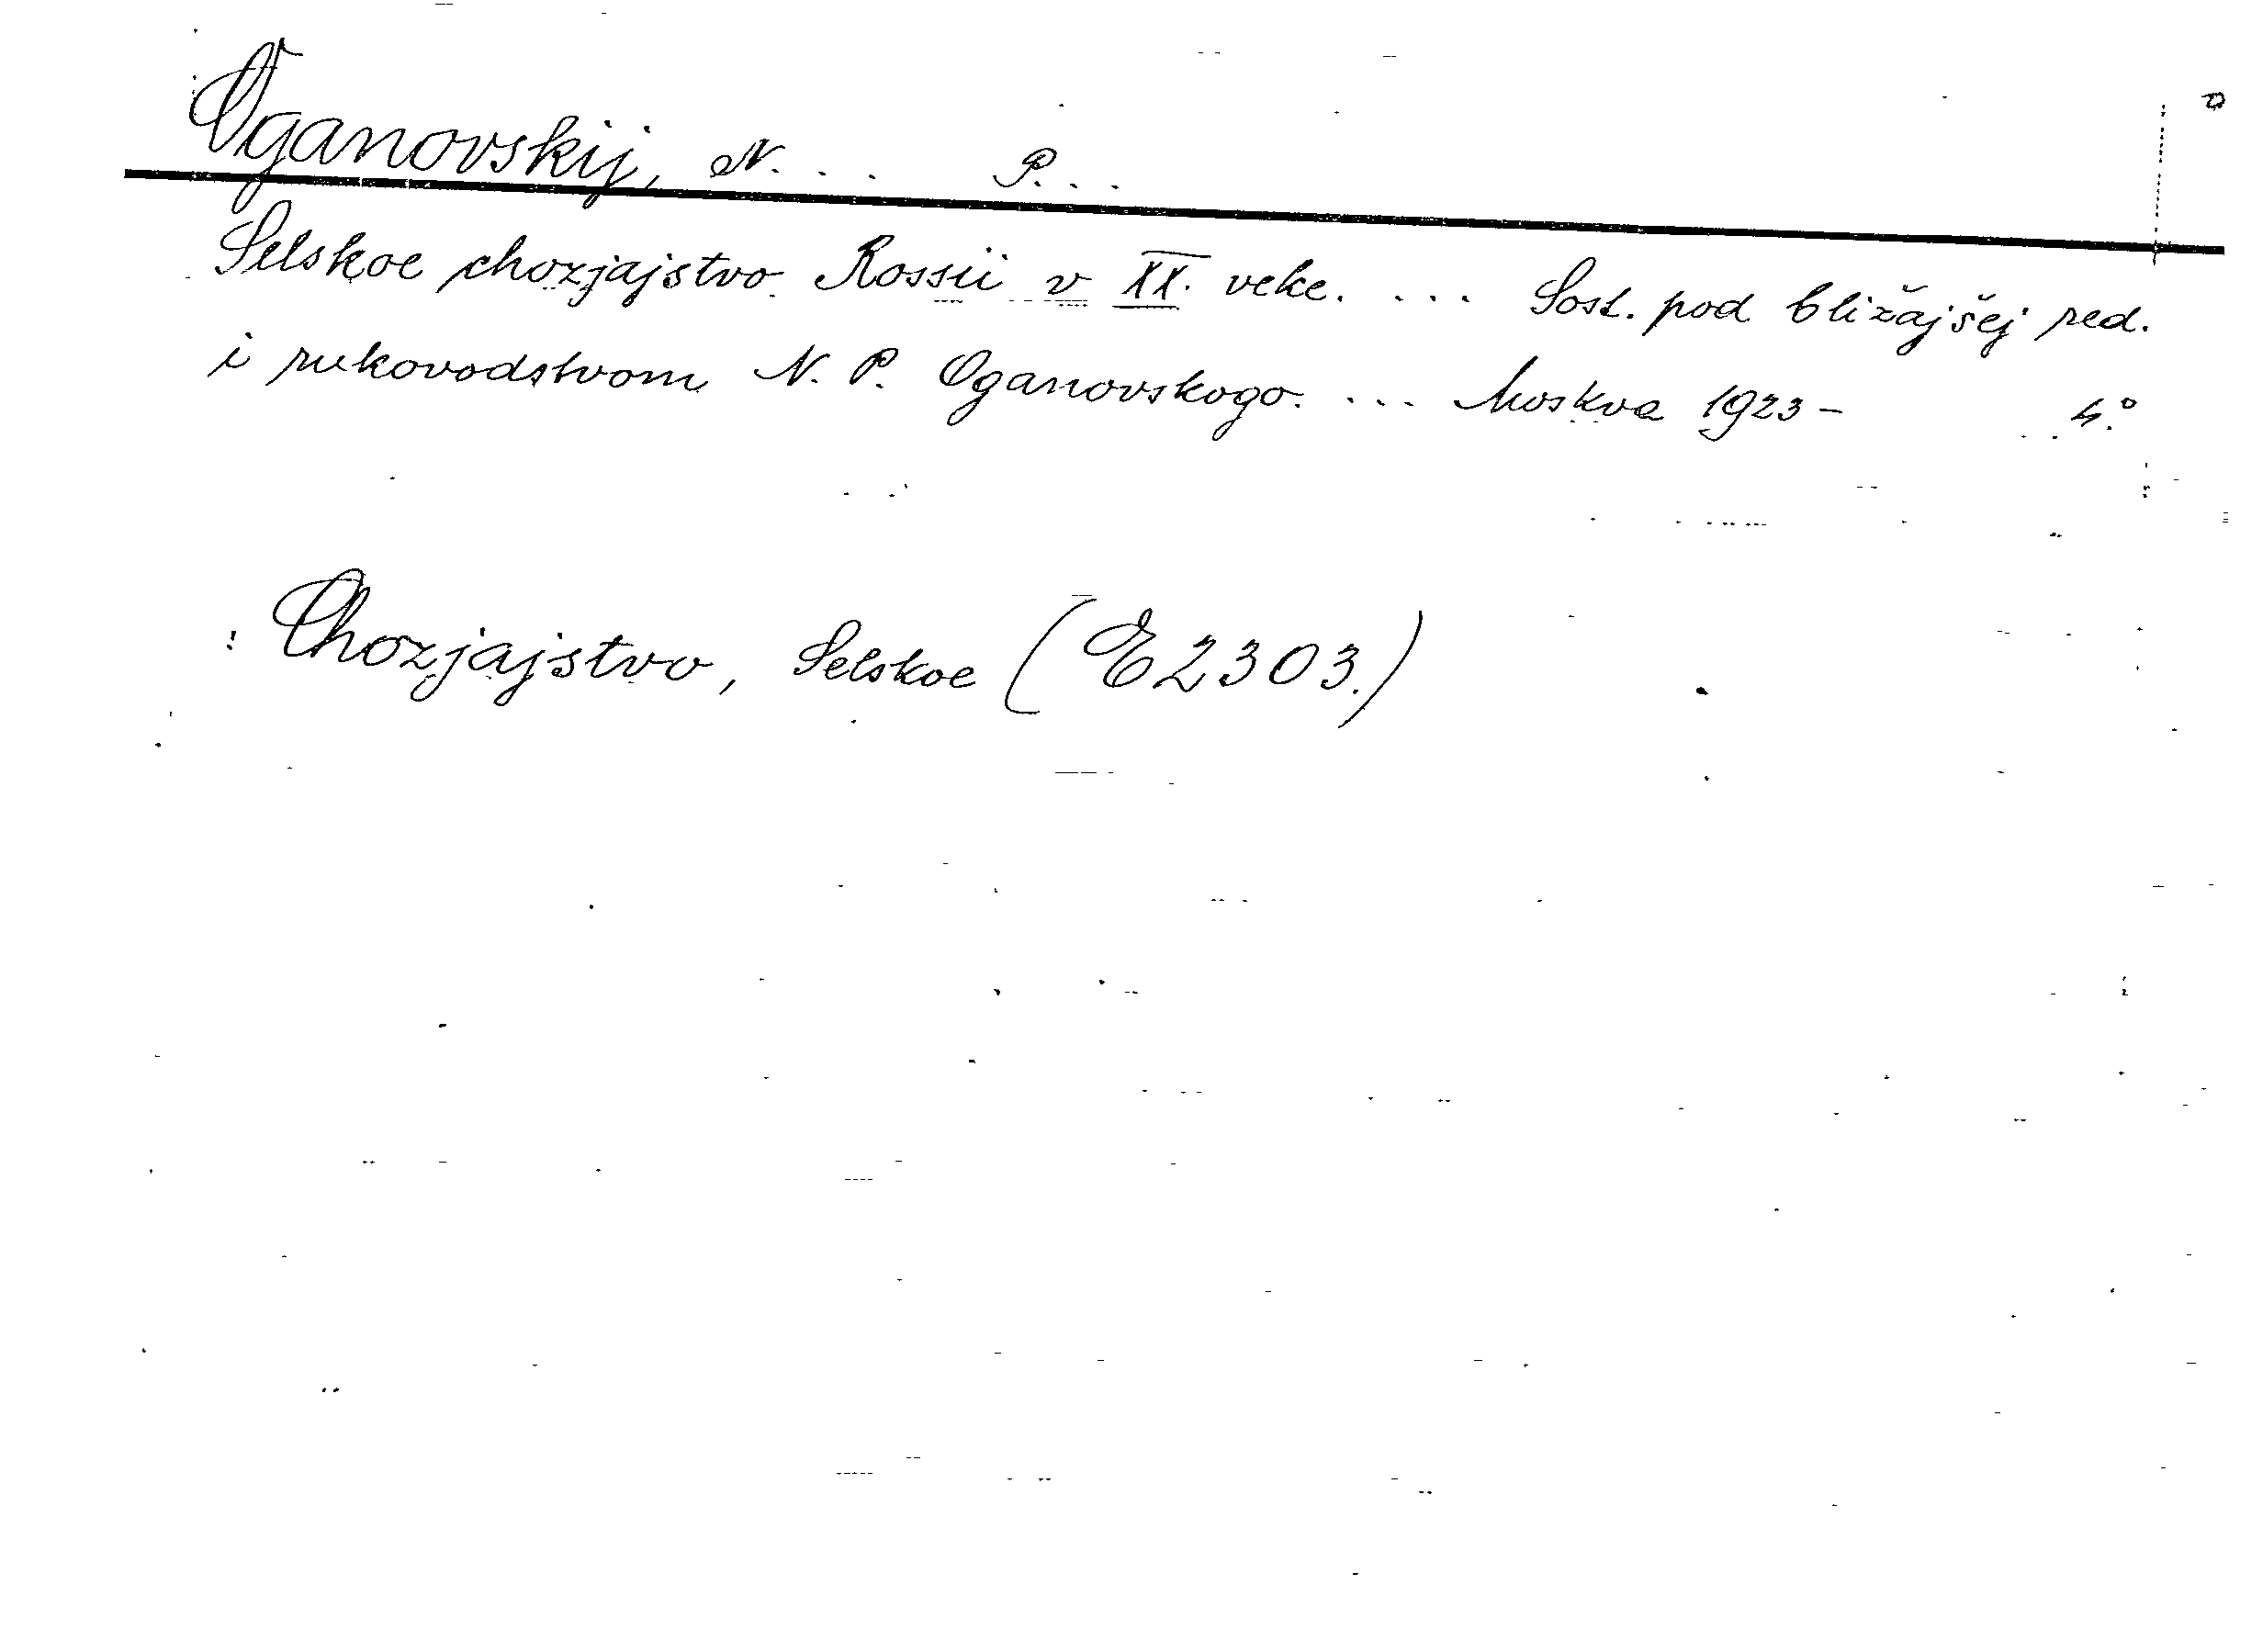 Oganovskij, N... P...
Selskoe chozjajstvo Rossii v XX. veke. ... Sost. pod bližajšej red.
i rukovodstvom N. P. Oganovskogo. ... Moskva 1923- 4.°
Chozjajstvo, Selskoe (E2303.)